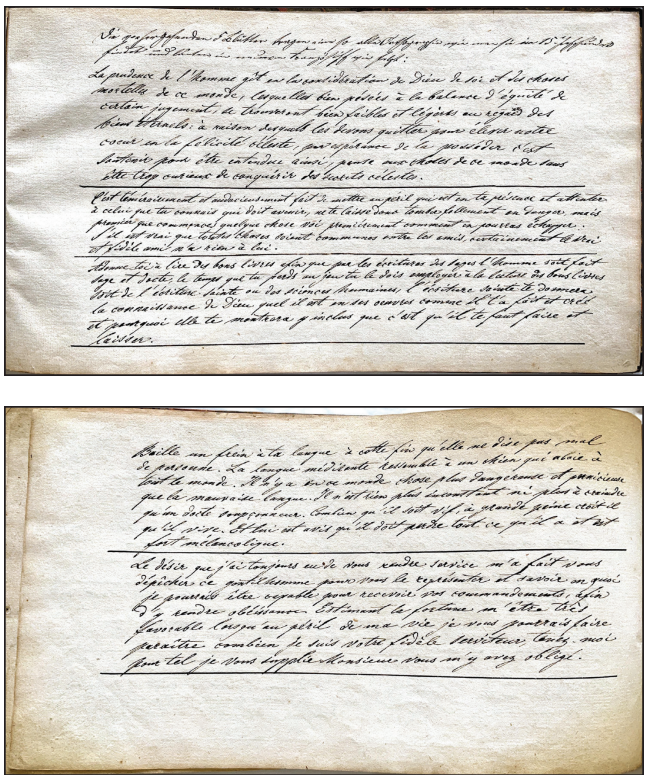 Die vorhergehenden Blätter tragen eine so alte Orthographie wie man sie im 15. Jahrhundert
findet und lauten in neuem Französisch wie folgt:
La prudence de l'homme gît en la considération de Dieu de soi et des choses
mortelles de ce monde, lesquelles bien pesées à la balance d'équité de
certain jugement, se trouveront bien faibles et légères au regard des
biens éternels; à raison desquels les devons quitter pour élever notre
coeur en la félicité céleste, par espérance de la posséder c'est
pour être entendue ainsi, pense aux choses de ce monde sans
être trop curieux de conquérir des célestes.
C'est témérairement et audacieusement fait de mettre au péril qui est en ta présence et attenter
à celui que tu connais qui doit avenir, ne te laisse donc tomber follement en danger, mais
premier que commencer quelque chose voi premièrement comment en pourras échapper.
S'il est vrai que toutes choses soient communes entre les amis, certainement le vrai
et fidèle ami n'a rien à lui.
Adonne toi à lire des bons livres afin que par les écritures des sages l'homme soit fait
sage et docte, le temps que tu perds un jeu tu le dois employer à la lecture des bons livres
soit de l'écriture sainte ou des sciences humaines, l'écriture sainte te donnera
la connaissance de Dieu quel il est en ses oeuvres comme il l'a fait et créé
et pourquoi elle te montrera y inclus que c'est qu'il te faut faire et
laisser.
Baille un frein à ta langue à cette fin qu'elle ne dise pas mal
de personne. La langue médisante ressemble à un chien qui aboie à
tout le monde. Il n'y a en ce monde chose plus dangereuse et pernicieuse
que la mauvaise langue. Il n'est rien plus inconstant ni plus à craindre
qu'un docte soupçonneur. Combien qu'il soit vif, à grande peine croit il
qu'il vive. Et lui est avis qu'il doit perdre tout ce qu'il a et est
fort mélancolique.
Le désir que j'ai toujours eu de vous rendre service m'a fait vous
dépêcher ce gentilhomme pour vous le représenter et savoir en quoi
je pourrais être capable pour recevoir vos commandements, afin
d'y rendre obéissance. Estimant la fortune m'être très
favorable lorsqu'au péril de ma vie je vous pourrais faire
paraître combien je suis votre fidèle serviteur, tenez moi
pour tel je vous supplie Monsieur vous m'y avez obligé.